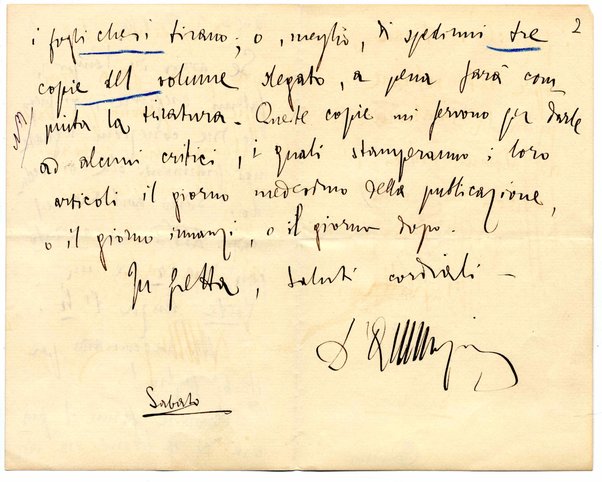 2
i fogli che si tirano; o, meglio, di spedirmi tre
copie del volume slegato, a pena sarà com-
piuta la tiratura. Queste copie mi servono per darle
ad alcuni critici, i quali stamperanno i loro
articoli il giorno medesimo della publicazione,
o il giorno innanzi, o il giorno dopo.
In fretta, saluti cordiali —
D'Annunzio
Sabato